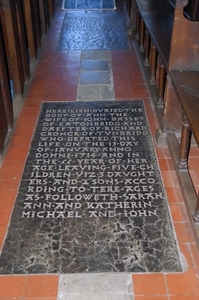 HERE LIETH BVRIED
THE BODY OF ANN THE
WIFE OF IOHN BASSET
OF EATONBRIDG AND
DAEFTER OF RICHARD
CRONCK OF TVNBRIDG
WHO DEPATED THIS
LIFE ON THE 13 DAY
OF IANVARY ANNO
DOMNI 1713 AND IN
THE YEAR OF HER
AGE LEAVING FIVE CH
ILDREN VIZ 3 DAVGHT
ERS AND 2 SONS ACCO
RDING TO TERE AGES
AS FOLLOWETH SARAH
ANN AND KATHERIN
MICHAEL AND IOHN